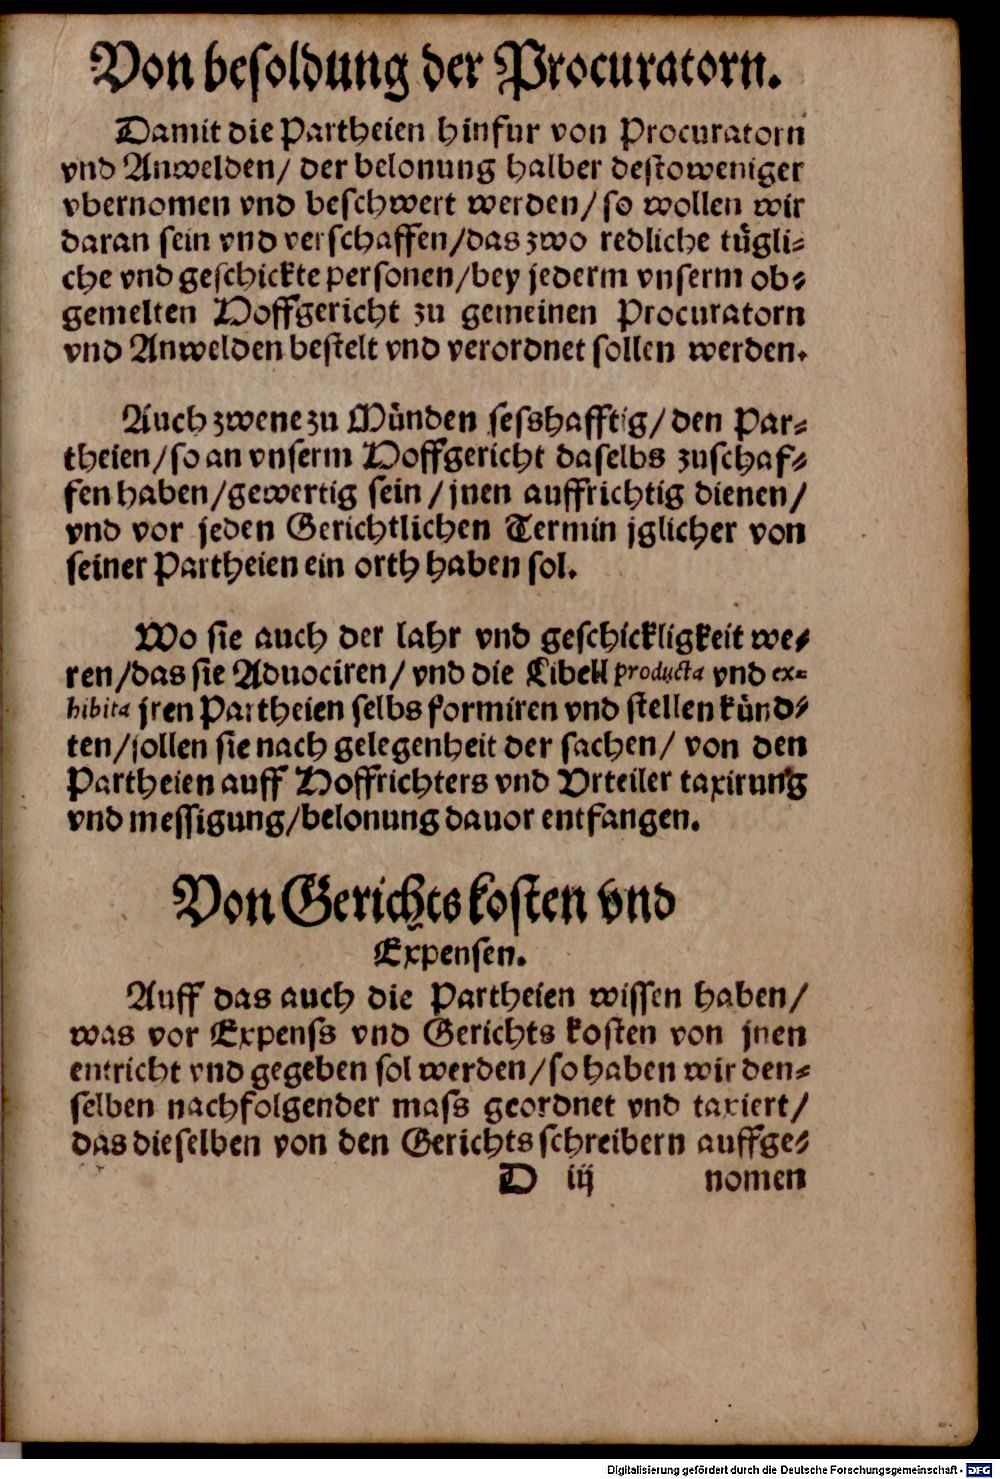 Von besoldung der Procuratorn.
Damit die Partheien hinfur von Procuratorn
vnd Anwelden/ der belonung halber destoweniger
vbernomen vnd beschwert werden/ so wollen wir
daran sein vnd verschaffen/das zwo redliche tügli⸗
che vnd geschickte personen/bey jederm vnserm ob⸗
gemelten Hoffgericht zu gemeinen Procuratorn
vnd Anwelden bestelt vnd verordnet sollen werden.
Auch zwene zu Münden sesshafftig/ den Par⸗
theien/ so an vnserm Hoffgericht daselbs zuschaf⸗
fen haben/gewertig sein / jnen auffrichtig dienen/
vnd vor jeden Gerichtlichen Termin jglicher von
seiner Partheien ein orth haben sol.
Wo sie auch der lahr vnd geschickligkeit we⸗
ren/das sie Aduociren/ vnd die Libell producta vnd ex⸗
hibita jren Partheien selbs formiren vnd stellen künd⸗
ten/sollen sie nach gelegenheit der sachen/ von den
Partheien auff Hoffrichters vnd Vrteiler taxirung
vnd messigung/belonung dauor entfangen.
Von Gerichts kosten vnd
Expensen.
Auff das auch die Partheien wissen haben/
was vor Expenss vnd Gerichts kosten von jnen
entricht vnd gegeben sol werden/so haben wir den⸗
selben nachfolgender mass geordnet vnd taxiert/
das dieselben von den Gerichts schreibern auffge⸗
D iij nomen
Digitalisierung gefördert durch die Deutsche Forschungsgemeinschaft - DFG